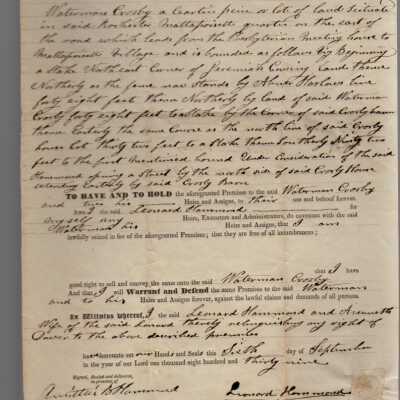 Waterman Crosby a Certain piece or lot of land Situate
in said Rochester Mattapoisett quarter on the east of
the road which leads from the Presbyterian Meeting house to
Mattapoisett Village and is bounded as follows viz Beginning
a Stake Northeast Corner of Jeremiah land thence
Northerly as the fence now Stands by Abner Harlows line
forty eight feet thence Northerly by land of said Waterman
Crosby forty eight feet to Stake by the Corner of said Crosby barn
thence Easterly the same Course as the north line of said Crosby
house lot thirty two feet to a Stake thence Southerly Ninty two
feet to the first mentioned bound Under Consideration of the said
Hammond opening a Street by the north side of said Crosby House
extending Easterly by said Crosby Barn
TO HAVE AND TO HOLD the aforegranted Premises to the said Waterman Crosby
and his Heirs and Assigns, to their use and behoof forever.
I the said Leonard Hammond for
myself my Heirs, Executors and Administrators, do covenant with the said
Waterman his Heirs and Assigns, that I am
lawfully seized in fee of the aforegranted Premises; that they are free of all incumbrances;
that I have
good right to sell and convey the same unto the said Waterman Crosby
And that I will Warrant and Defend the same Premises to the said Waterman
and to his Heirs and Assigns forever, against the lawful claims and demands of all persons.
In Witness whereof, I the said Leonard Hammond and
Wife of the said Leonard hereby relinquishing my right of
Dower to the above described premises
have hereunto set our Hands and Seals this Sixth day of September
in the year of our Lord one thousand eight hundred and thirty nine
Signed, Sealed and delivered,
in presence of
B Hammond Leonard Hammond